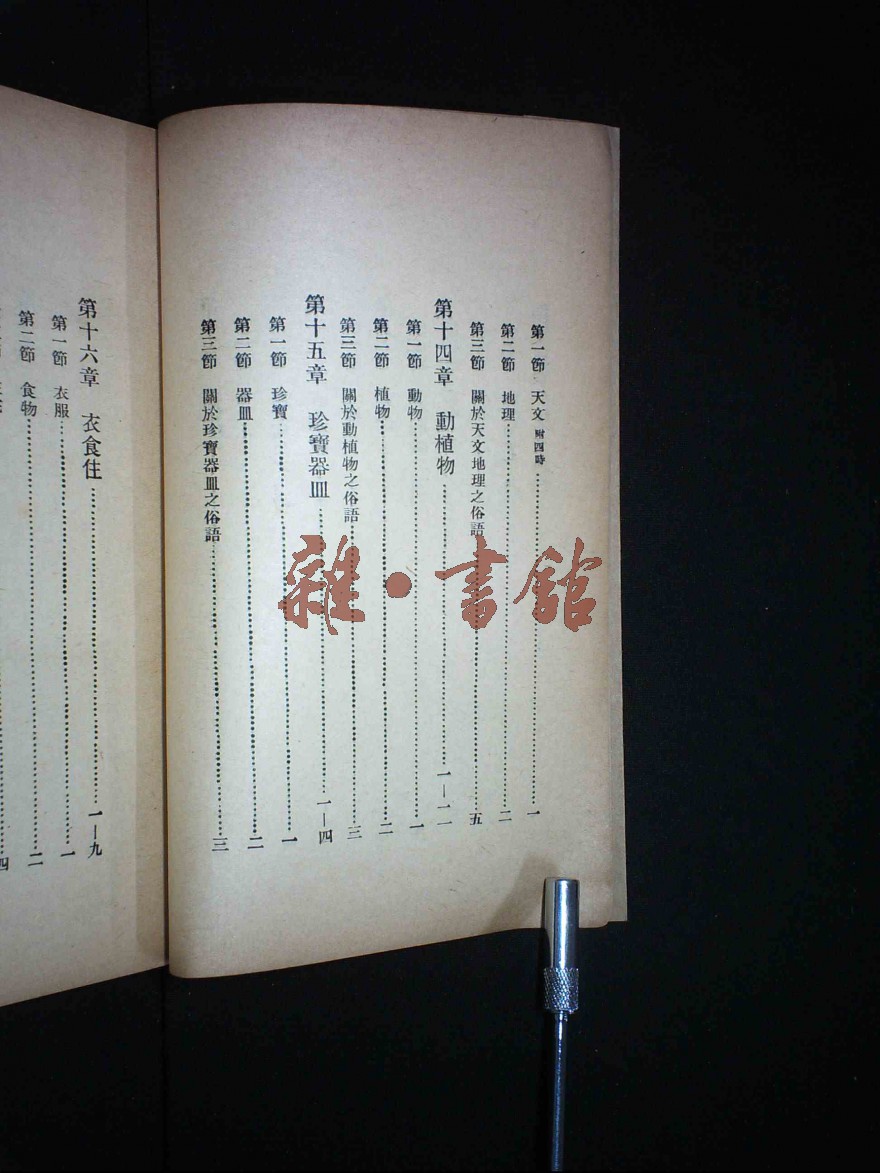 第一節 天文 附四時 一
第二節 地理 二
第三節 關於天文地理之俗語 五
第十四章 動植物 一—一一
第一節 動物 一
第二節 植物 二
第三節 關於動植物之俗語 三
第十五章 珍寶器皿 一—四
第一節 珍寶 一
第二節 器皿 二
第三節 關於珍寶器皿之俗語 三
第十六章 衣食住 一—九
第一節 衣服 一
第二節 食物 二
四
雜·書館